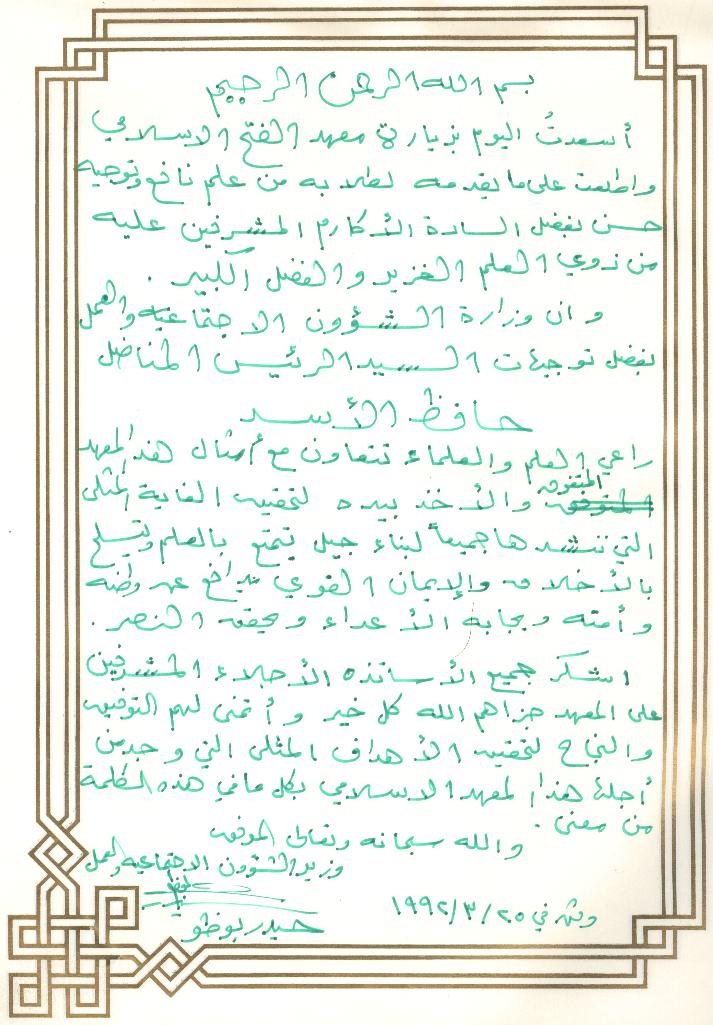 بسم الله الرحمن الرحيم
أسعدتُ اليوم بزيارة معهد الفتح الاسلامي
واطلعت على ما يقدمه لطلابه من علم نافع وتوجيه
حسن بفضل السادة الأكارم المشرفين عليه
من ذوي العلم الغزير والفضل الكبير .
وان وزارة الشؤون الاجتماعية والعمل
بفضل توجيهات السيد الرئيس المناضل
حافظ الأسد
راعي العلم والعلماء تتعاون مع أمثال هذا المعهد
المتفوق والأخذ بيده لتحقيق الغاية المثلى
التي ننشدها جميعاً لبناء جيل يتمتع بالعلم ويتسلح
بالأخلاق والإيمان القوي يدافع عن وطنه
وأمته ويجابه الأعداء ويحقق النصر .
اشكر جميع الأساتذه الأجلاء المشرفين
على المعهد جزاهم الله كل خير وأتمنى لهم التوفيق
والنجاح لتحقيق الأهداف المثلى التي وجد من
أجلها هذا المعهد الاسلامي بكل ما في هذه الكلمة
من معنى .
والله سبحانه وتعالى الموفق
وزير الشؤون الاجتماعيه والعمل
في ١٩٩٢/٣/٢٥
حيدر بوظو